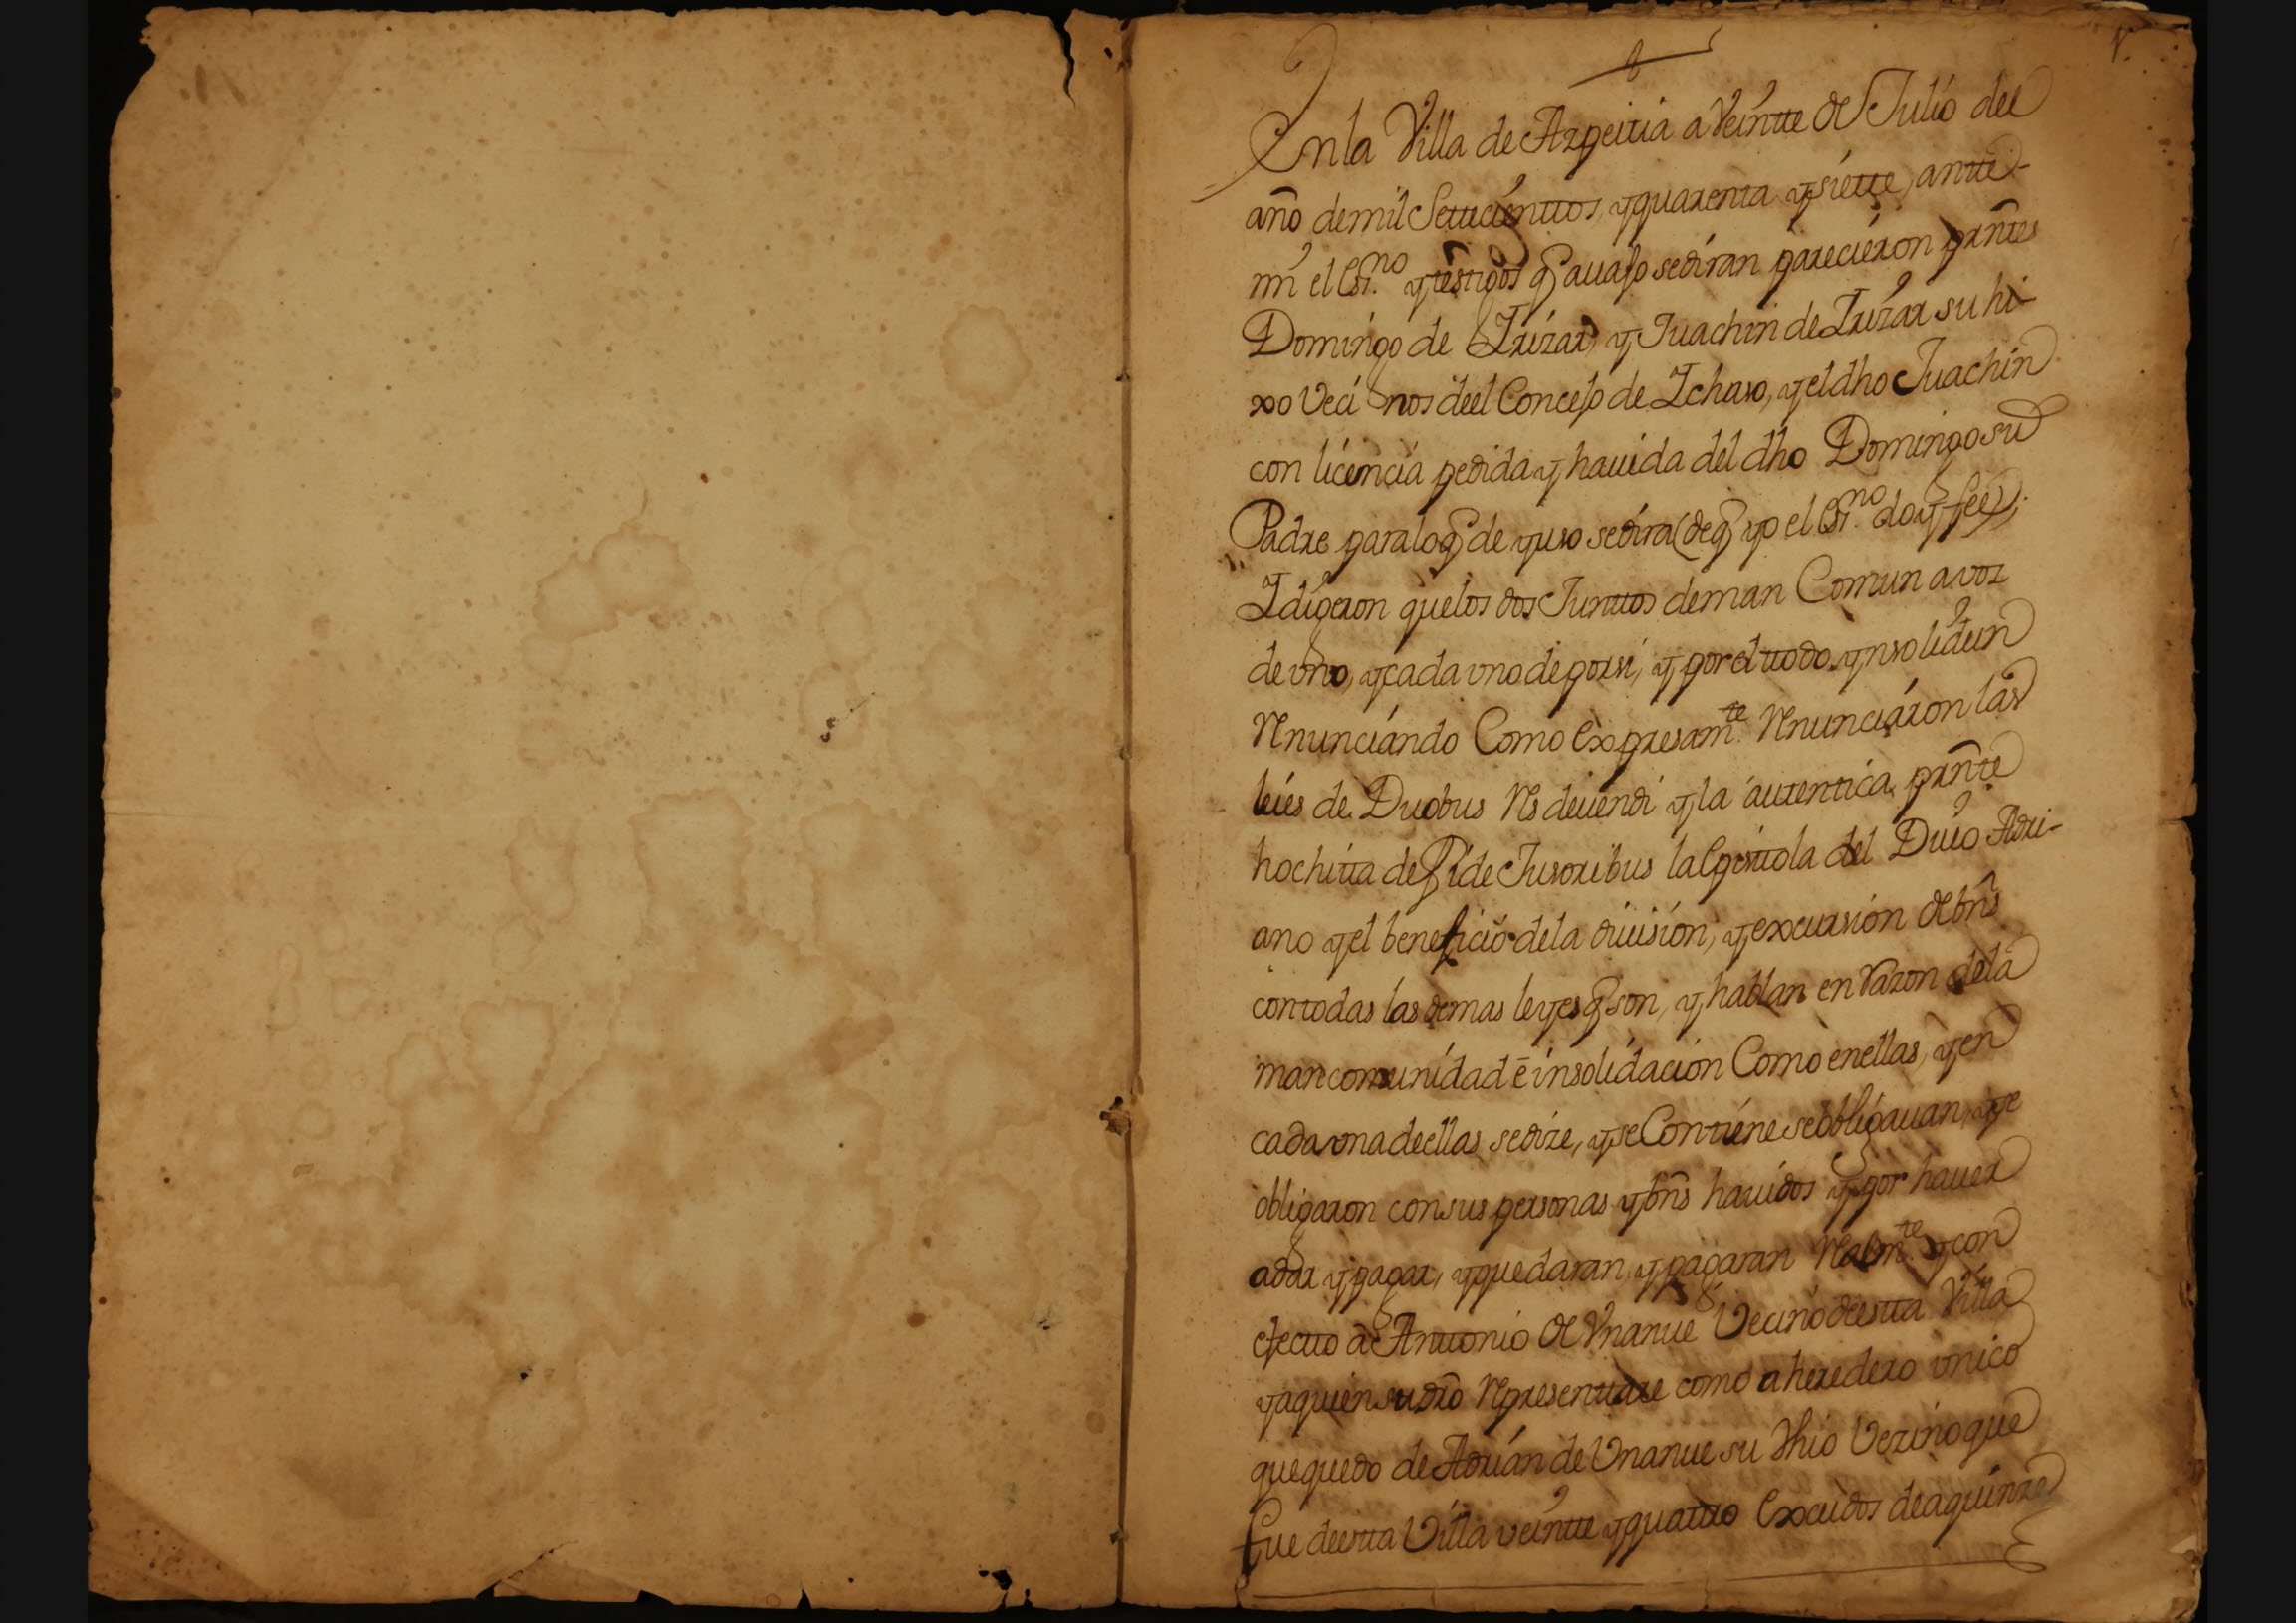 En la Villa de Azpeitia a Veintte de Julio del
año de mil Settecienttos, y quarenta y siette, antte
mi el Esno. y testigos q avajo se diran parecieron prntes
Domingo de Irizar, y Juachin de Irizar su hi-
xo Vecinos deel Concejo de Ichaso, y el dho Juachin
con licencia pedida y havida del dho Domingo su
Padre para lo q de yuso se dira (de q yo el Esno. doy fee),
I digeron que los dos Junttos de man Comun a voz
de vno, y cada vno de por si, y por el ttodo ynsolidun
Renunciando Como Expresamte. Renunciaron las
leies de Duobus Res devendi y la autentica prnte
hochitta de Fide Jusoribus la Episttola del Divo Adri-
ano y el beneficio de la division, y excursion de bns
con todas las demas leyes q son, y hablan en Razon de la
mancomunidad e insolidacion Como en ellas, y en
cada vna de ellas se dize, y se Conttiene se obbligavan, y se
obligaron con sus personas y bns havidos y por haver
a dar y pagar, y que daran y pagaran Realmte. y con
efectto a Anttonio de Vnanue Vecino de estta Villa
y a quien su dro Representtare como a heredero vnico
que quedo de Adrian de Vnanue su thio Vezino que
fue de estta Villa veintte y quattro Excudos de a quinze